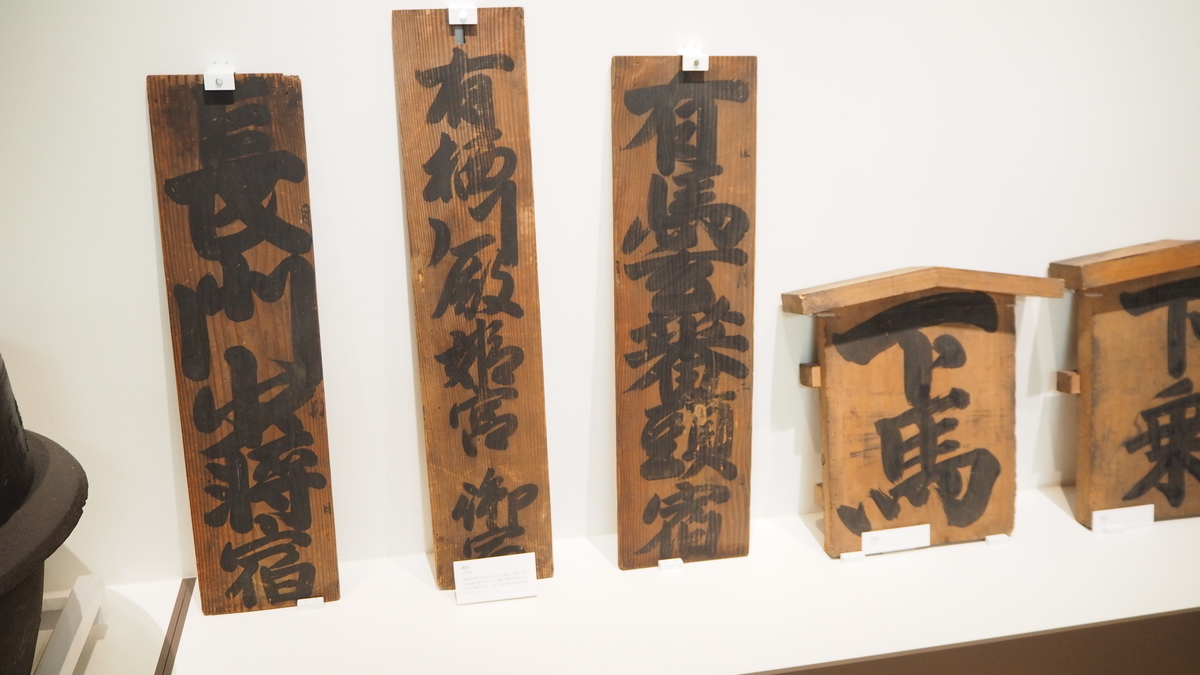 長州少将宿
有栖川殿姫宮 御
有馬玄蕃頭宿
下馬
下乗